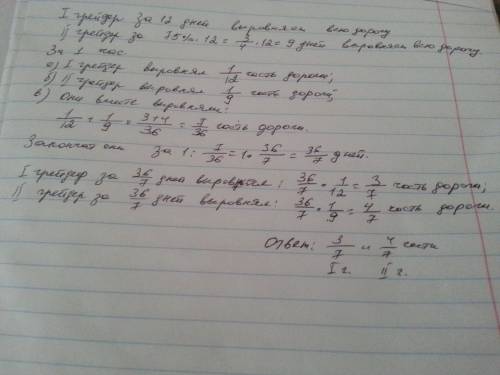 I грейдер за 12 дней выровнял всю дорогу
II грейдер за 75% · 12 = 3/4 · 12 = 9 дней выровнял всю дорогу
За 1 час
а) I грейдер выровнял 1/12 часть дороги;
б) II грейдер выровнял 1/9 часть дороги;
в) Они вместе выровняли:
1/12 + 1/9 = 3+4/36 = 7/36 часть дороги.
Закончат они за 1 : 7/36 = 1 · 36/7 = 36/7 дней.
I грейдер за 36/7 дней выровнял: 36/7 · 1/12 = 3/7 часть дороги;
II грейдер за 36/7 дней выровнял: 36/7 · 1/9 = 4/7 часть дороги.
Ответ: 3/7 и 4/7 части
I г. II г.